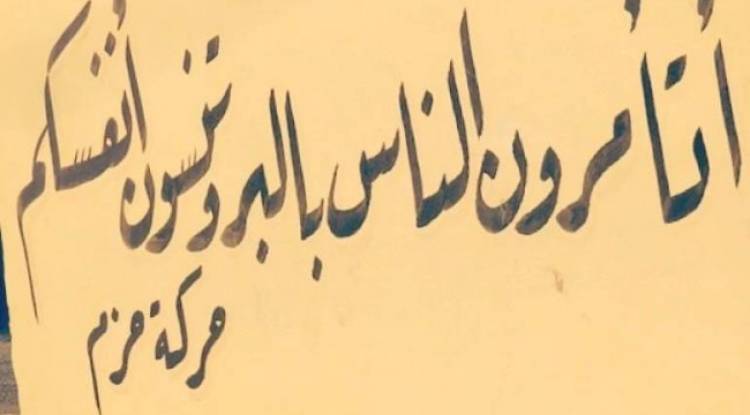 أتأمرون الناس بالبر وتنسون أنفسكم
حركة حزم